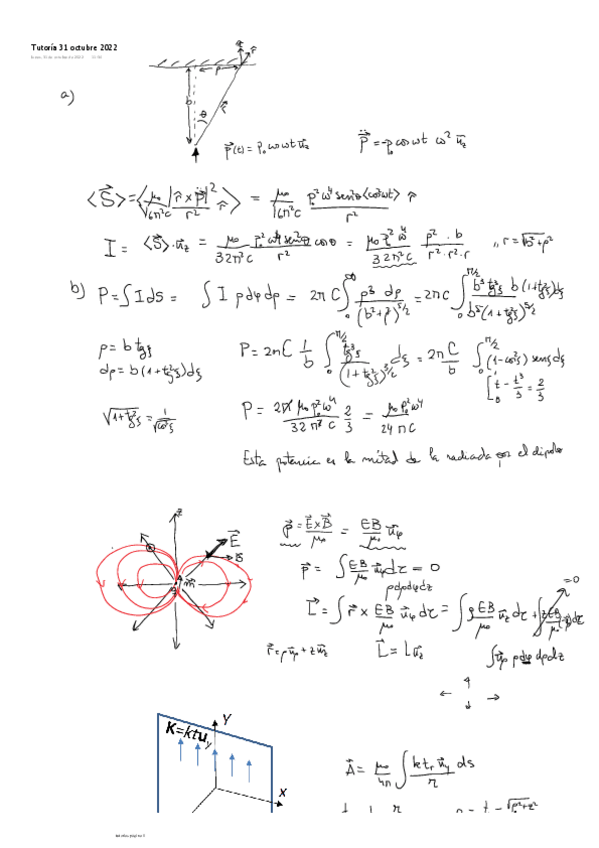 Tutoría 31 octubre 2022
a)
b
ρ
θ
r
p⃗(t) = p₀ cos ωt u⃗z
p̈⃗ = -p₀ cos ωt ω² u⃗z
⟨S⃗⟩ = ⟨ μ₀/16π²c |r̂ × p̈⃗|²/r² r̂ ⟩ = μ₀/16π²c p₀²ω⁴ sen²θ⟨cos²ωt⟩/r² r̂
I = ⟨S⃗⟩·u⃗z = μ₀/32π²c p₀²ω⁴ sen²θ/r² cos θ = μ₀p₀²ω⁴/32π²c ρ²·b/r²·r²·r ,, r = √b²+ρ²
b) P = ∫ I ds = ∫ I ρdφdρ = 2πC ∫₀^∞ ρ³ dρ/(b²+ρ²)^5/2 = 2πC ∫₀^π/2 b³tg³ξ b(1+tg²ξ)dξ/b⁵(1+tg²ξ)^5/2
ρ = b tgξ
dρ = b(1+tg²ξ)dξ
P = 2πC 1/b ∫₀^π/2 tg³ξ/(1+tg²ξ)^3/2 dξ = 2πC/b ∫₀^π/2 (1-cos²ξ) senξ dξ
[t - t³/3 = 2/3
√1+tg²ξ = 1/√cos²ξ
P = 2π μ₀p₀²ω⁴/32π²c 2/3 = μ₀p₀²ω⁴/24πc
Esta potencia es la mitad de la radiada por el dipolo
z
E⃗
B⃗
m⃗
℘⃗ = E⃗×B⃗/μ₀ = EB/μ₀ u⃗φ
p⃗ = ∫ EB/μ₀ u⃗φ dτ = 0
ρdρdφdz
L⃗ = ∫ r⃗ × EB/μ₀ u⃗φ dτ = ∫ ρEB/μ₀ u⃗z dτ + ∫ zEB/μ₀ (-u⃗ρ)dτ
=0
r⃗ = ρu⃗ρ + zu⃗z
L⃗ = L u⃗z
∫ u⃗ρ ρdφ dρdz
K=ktuy
Y
X
A⃗ = μ₀/4π ∫ k tr u⃗y/r ds